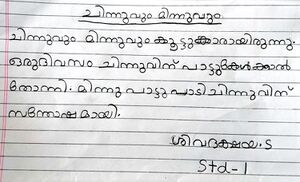 ചിന്നുവും മിന്നുവും
ചിന്നുവും മിന്നുവും കൂട്ടുക്കാരായിരുന്നു.
ഒരുദിവസം ചിന്നുവിന് പാട്ടുകേൾക്കാൻ
തോന്നി. മിന്നു പാട്ടു പാടി ചിന്നുവിന്
സന്തോഷമായി.
ശിവദക്ഷയ. S
Std-1